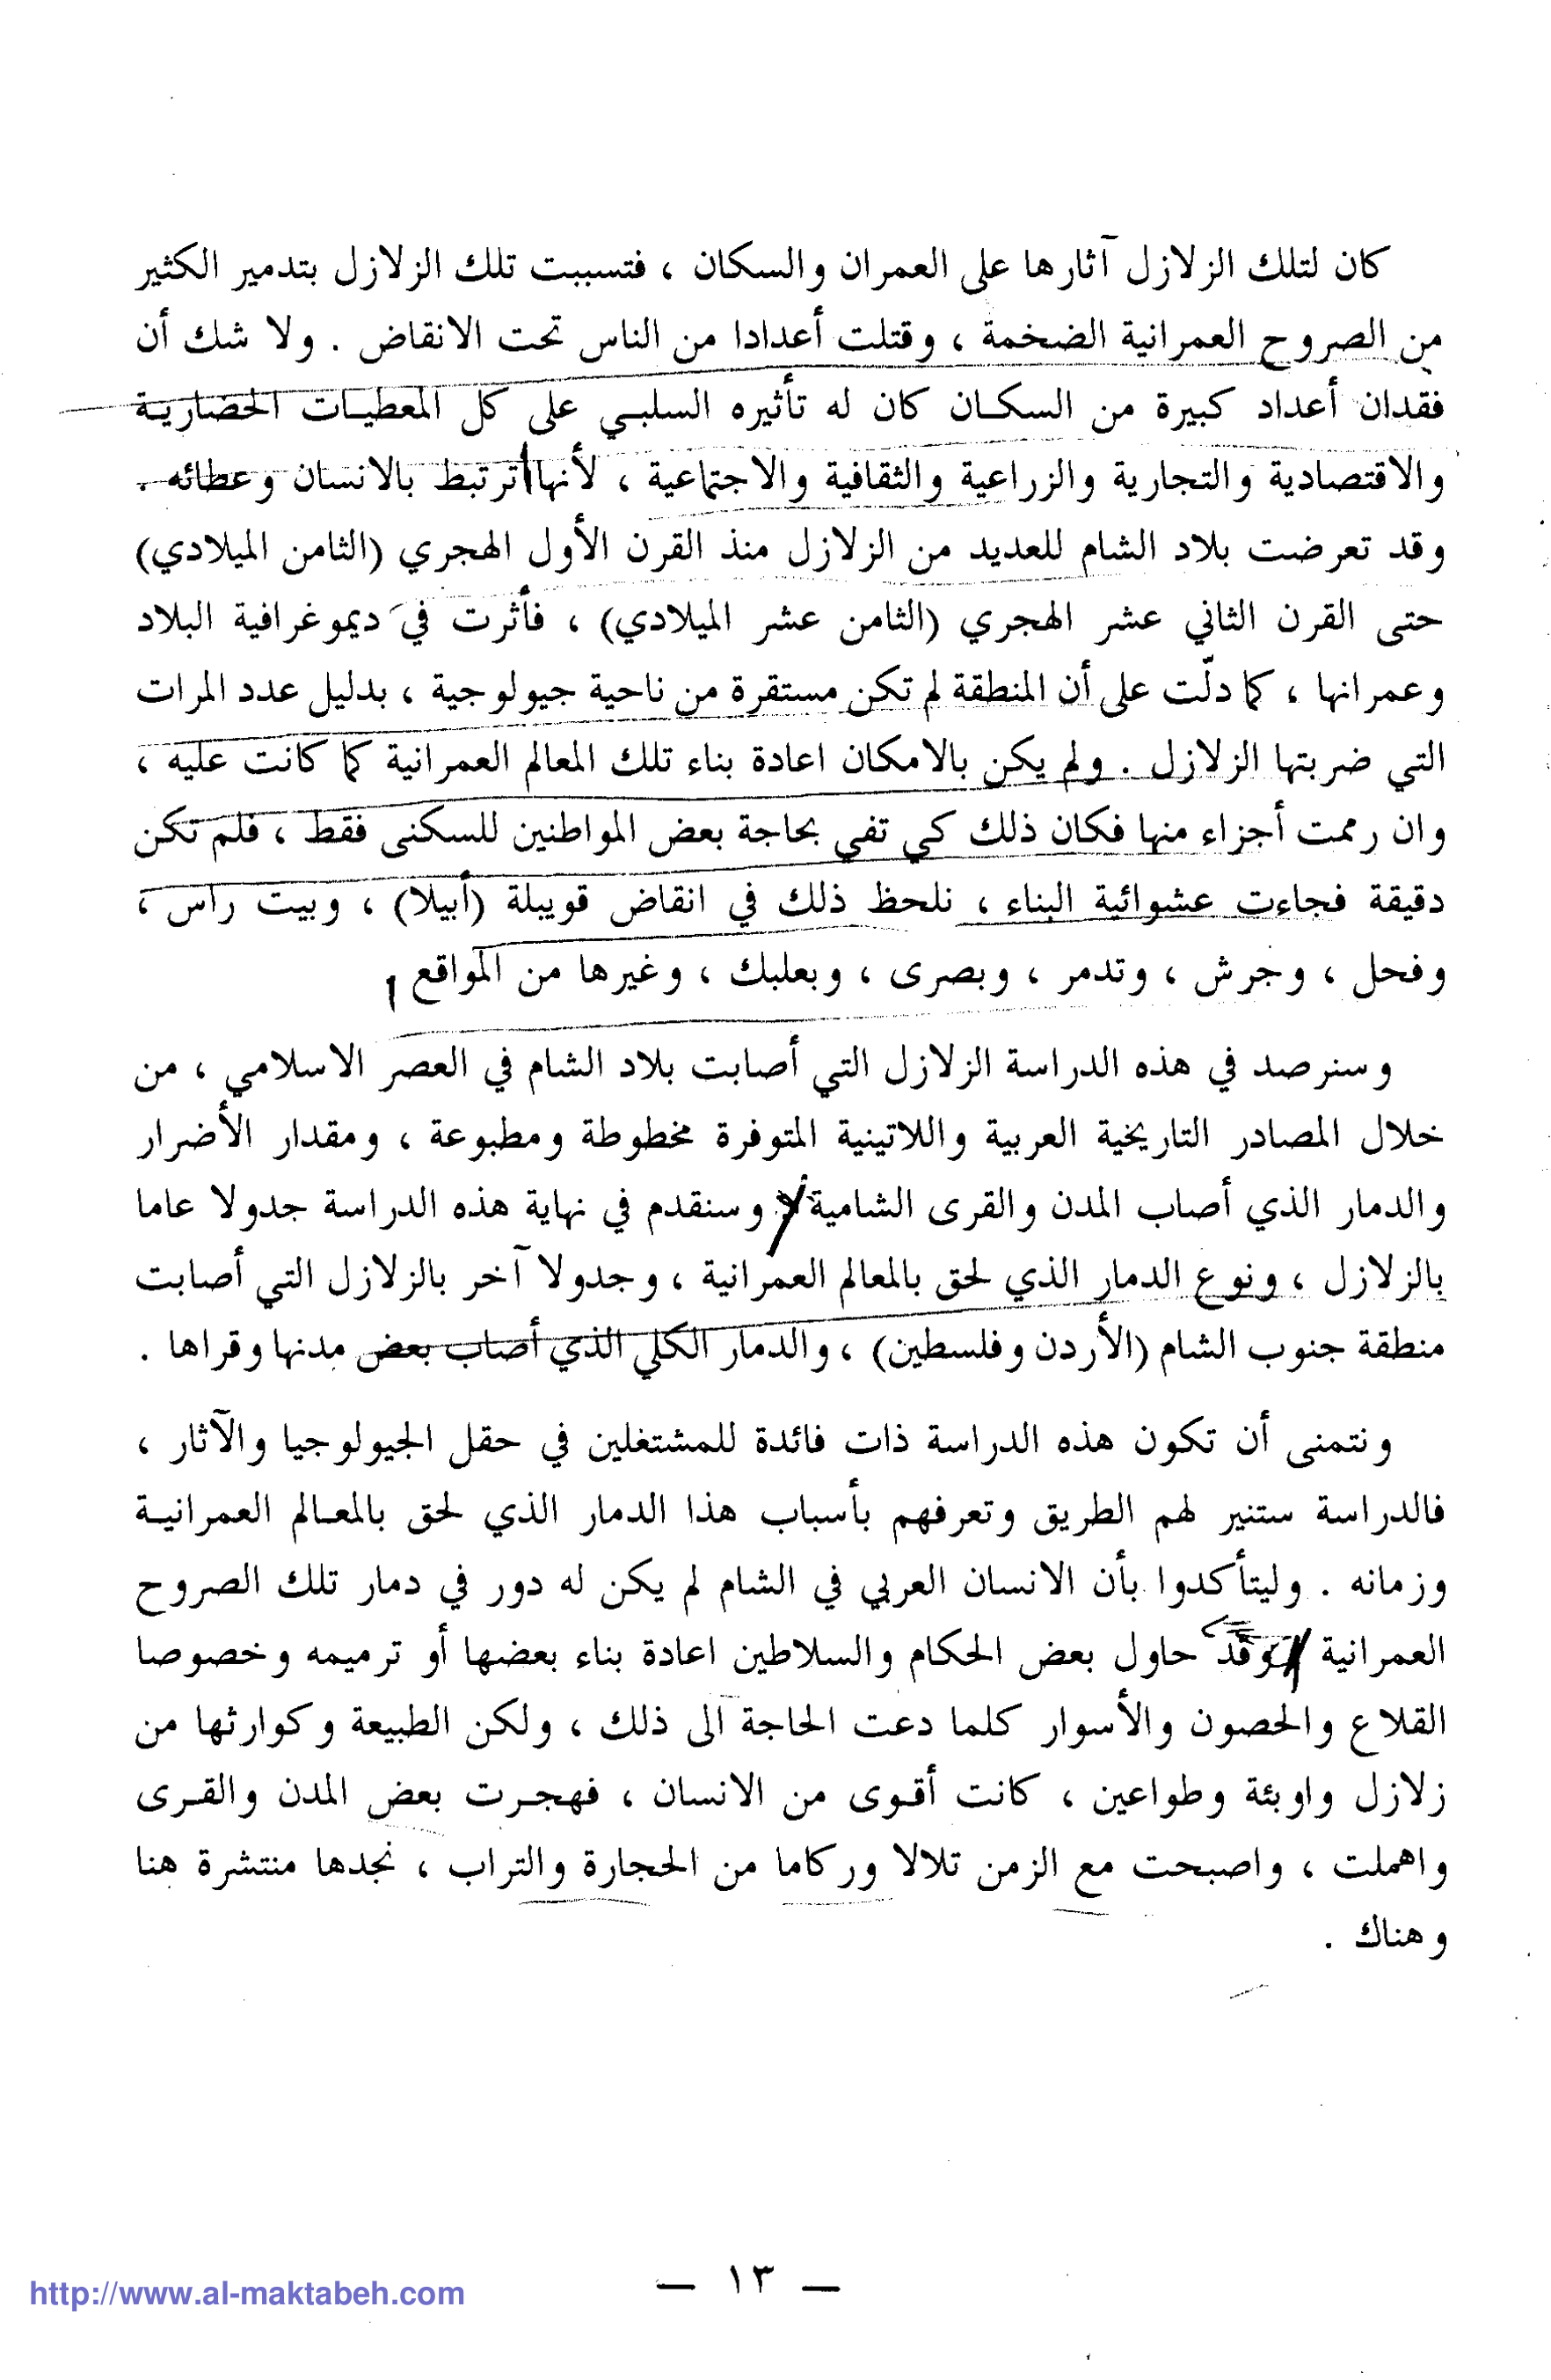 كان لتلك الزلازل آثارها على العمران والسكان ، فتسببت تلك الزلازل بتدمير الكثير
من الصروح العمرانية الضخمة ، وقتلت أعدادا من الناس تحت الانقاض . ولا شك أن
فقدان أعداد كبيرة من السكان كان له تأثيره السلبي على كل المعطيات الحضارية
والاقتصادية والتجارية والزراعية والثقافية والاجتماعية ، لأنها ترتبط بالانسان وعطائه .
وقد تعرضت بلاد الشام للعديد من الزلازل منذ القرن الأول الهجري (الثامن الميلادي)
حتى القرن الثاني عشر الهجري (الثامن عشر الميلادي) ، فأثرت في ديموغرافية البلاد
وعمرانها ، كما دلّت على أن المنطقة لم تكن مستقرة من ناحية جيولوجية ، بدليل عدد المرات
التي ضربتها الزلازل . ولم يكن بالامكان اعادة بناء تلك المعالم العمرانية كما كانت عليه ،
وان رممت أجزاء منها فكان ذلك كي تفي بحاجة بعض المواطنين للسكنى فقط ، فلم تكن
دقيقة فجاءت عشوائية البناء ، نلحظ ذلك في انقاض قويبلة (أبيلا) ، وبيت راس ،
وفحل ، وجرش ، وتدمر ، وبصرى ، وبعلبك ، وغيرها من المواقع
وسنرصد في هذه الدراسة الزلازل التي أصابت بلاد الشام في العصر الاسلامي ، من
خلال المصادر التاريخية العربية واللاتينية المتوفرة مخطوطة ومطبوعة ، ومقدار الأضرار
والدمار الذي أصاب المدن والقرى الشامية وسنقدم في نهاية هذه الدراسة جدولا عاما
بالزلازل ، ونوع الدمار الذي لحق بالمعالم العمرانية ، وجدولا آخر بالزلازل التي أصابت
منطقة جنوب الشام (الأردن وفلسطين) ، والدمار الكلي الذي أصاب بعض مدنها وقراها .
ونتمنى أن تكون هذه الدراسة ذات فائدة للمشتغلين في حقل الجيولوجيا والآثار ،
فالدراسة ستنير لهم الطريق وتعرفهم بأسباب هذا الدمار الذي لحق بالمعالم العمرانية
وزمانه . وليتأكدوا بأن الانسان العربي في الشام لم يكن له دور في دمار تلك الصروح
العمرانية وقد حاول بعض الحكام والسلاطين اعادة بناء بعضها أو ترميمه وخصوصا
القلاع والحصون والأسوار كلما دعت الحاجة الى ذلك ، ولكن الطبيعة وكوارثها من
زلازل واوبئة وطواعين ، كانت أقوى من الانسان ، فهجرت بعض المدن والقرى
واهملت ، واصبحت مع الزمن تلالا وركاما من الحجارة والتراب ، نجدها منتشرة هنا
وهناك .
— ١٣ —
http://www.al-maktabeh.com